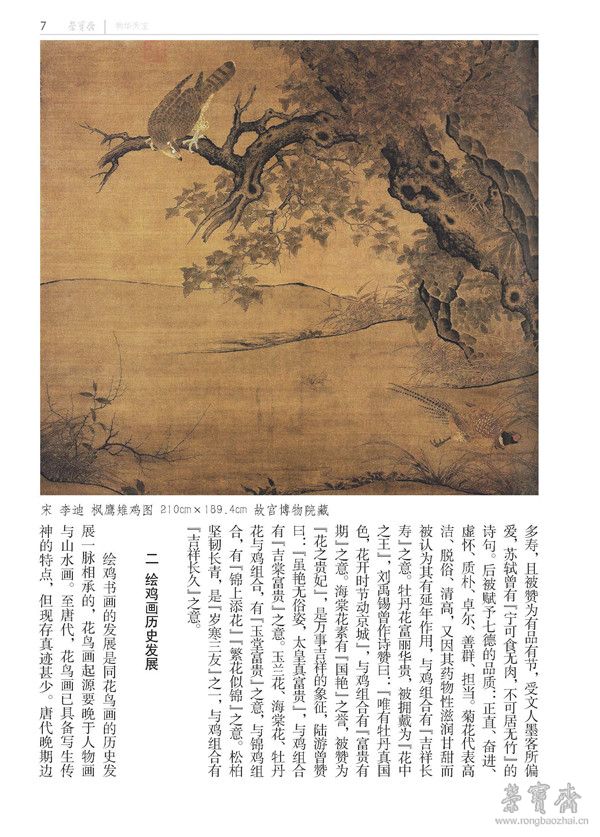 7
荣宝斋
物华天宝
宋 李迪 枫鹰雉鸡图 210cm×189.4cm 故宫博物院藏
多寿，且被赞为有品有节，受文人墨客所偏
爱，苏轼曾有『宁可食无肉，不可居无竹』的
诗句。后被赋予七德的品质：正直、奋进、
虚怀、质朴、卓尔、善群、担当。菊花代表高
洁、脱俗、清高，又因其药物性滋润甘甜而
被认为其有延年作用，与鸡组合有『吉祥长
寿』之意。牡丹花富丽华贵，被拥戴为『花中
之王』，刘禹锡曾作诗赞曰：『唯有牡丹真国
色，花开时节动京城』，与鸡组合有『富贵有
期』之意。海棠花素有『国艳』之誉，被赞为
『花之贵妃』，是万事吉祥的象征，陆游曾赞
曰：『虽艳无俗姿，太皇真富贵』，与鸡组合
有『吉棠富贵』之意。玉兰花、海棠花、牡丹
花与鸡组合，有『玉堂富贵』之意，与锦鸡组
合，有『锦上添花』『繁花似锦』之意。松柏
坚韧长青，是『岁寒三友』之一，与鸡组合有
『吉祥长久』之意。
二 绘鸡画历史发展
绘鸡书画的发展是同花鸟画的历史发
展一脉相承的，花鸟画起源要晚于人物画
与山水画。至唐代，花鸟画已具备写生传
神的特点，但现存真迹甚少。唐代晚期边
荣宝斋
www.rongbaozhai.cn